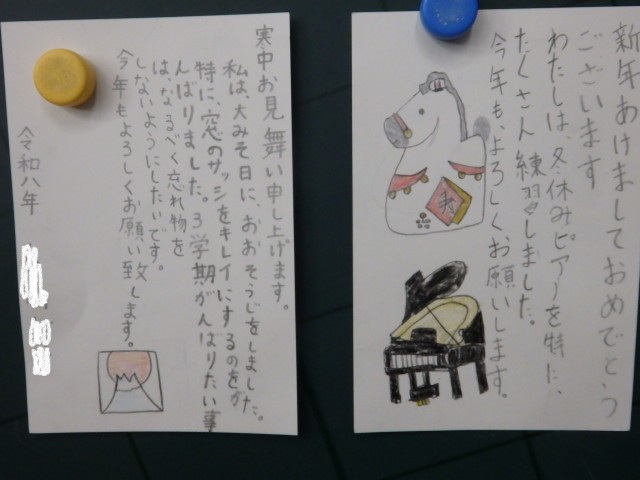 新年あけましておめでとう
ございます
わたしは、冬休みピアノを特に、
たくさん練習しました。
今年も、よろしくお願いします。
寒中お見舞い申し上げます。
私は、大みそ日に、おおそうじをしました。
特に、窓のサッシをキレイにするのをが
んばりました。3学期がんばりたい事
は、なるべく忘れ物を
しないようにしたいです。
今年もよろしくお願い致します。
令和八年